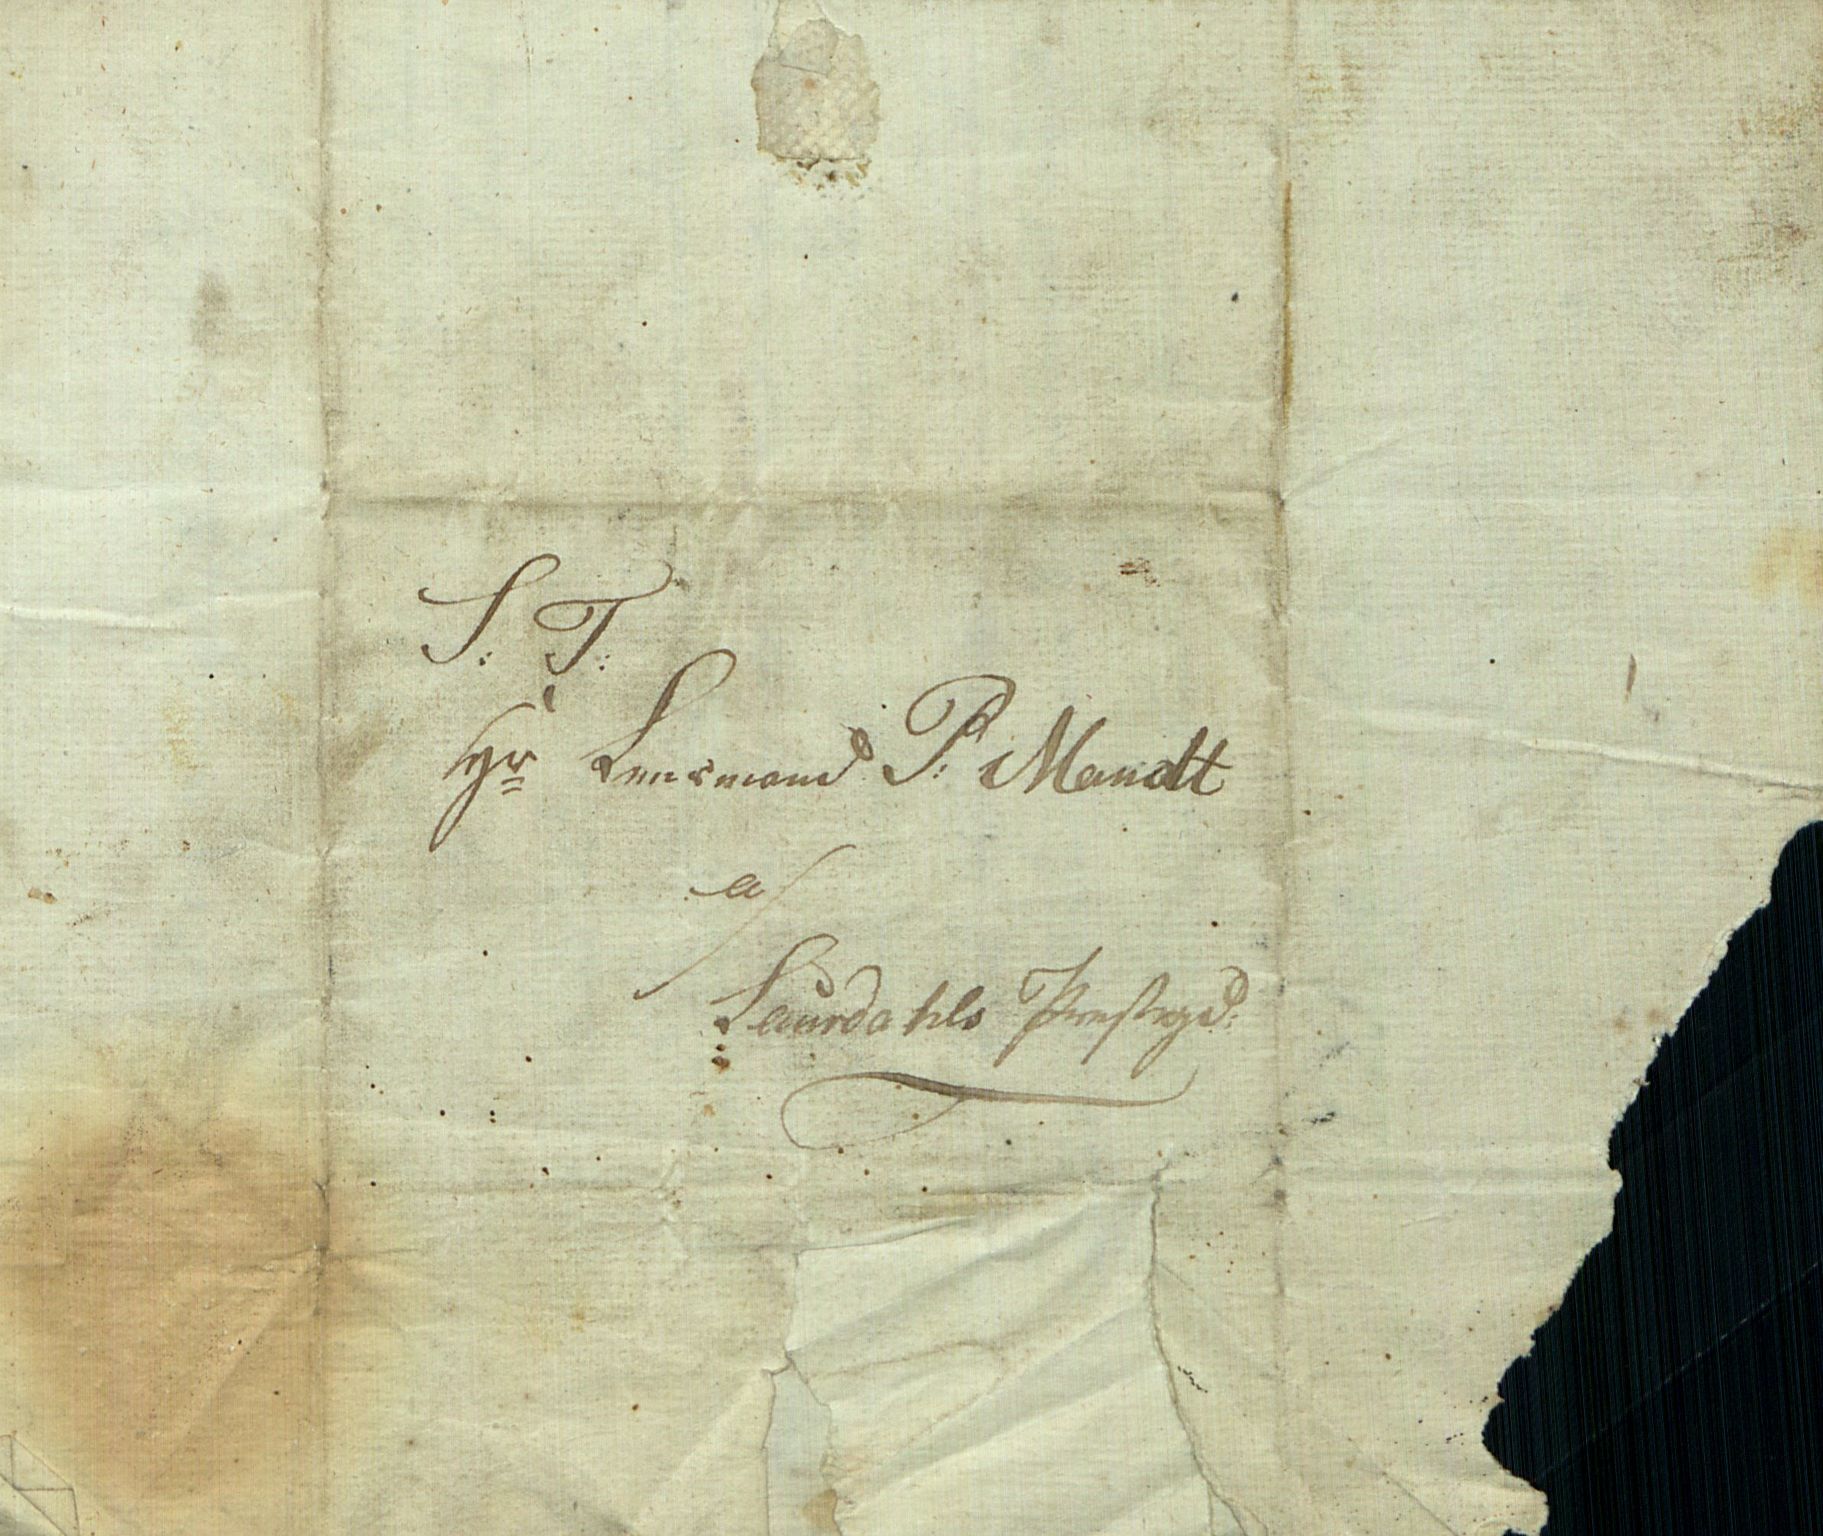 S: T:
Hr Lensmand P: Mandt
a/
Laurdahls Prestegd: